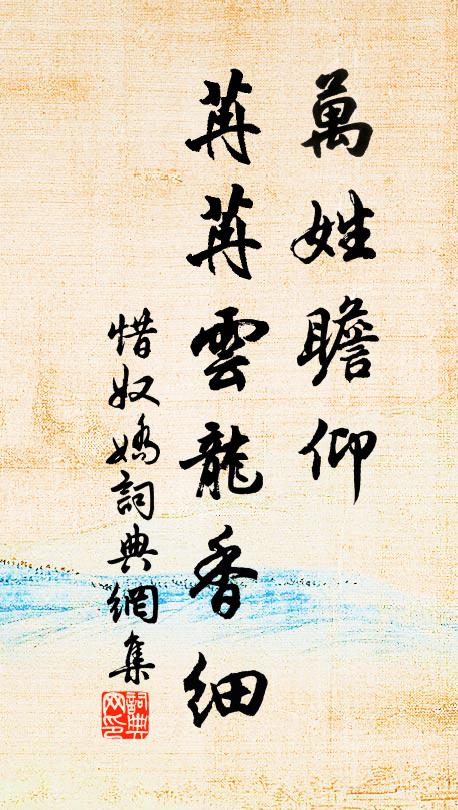 萬姓瞻仰
苒苒雲龍香細
惜奴嬌詞典網集
詞典网印